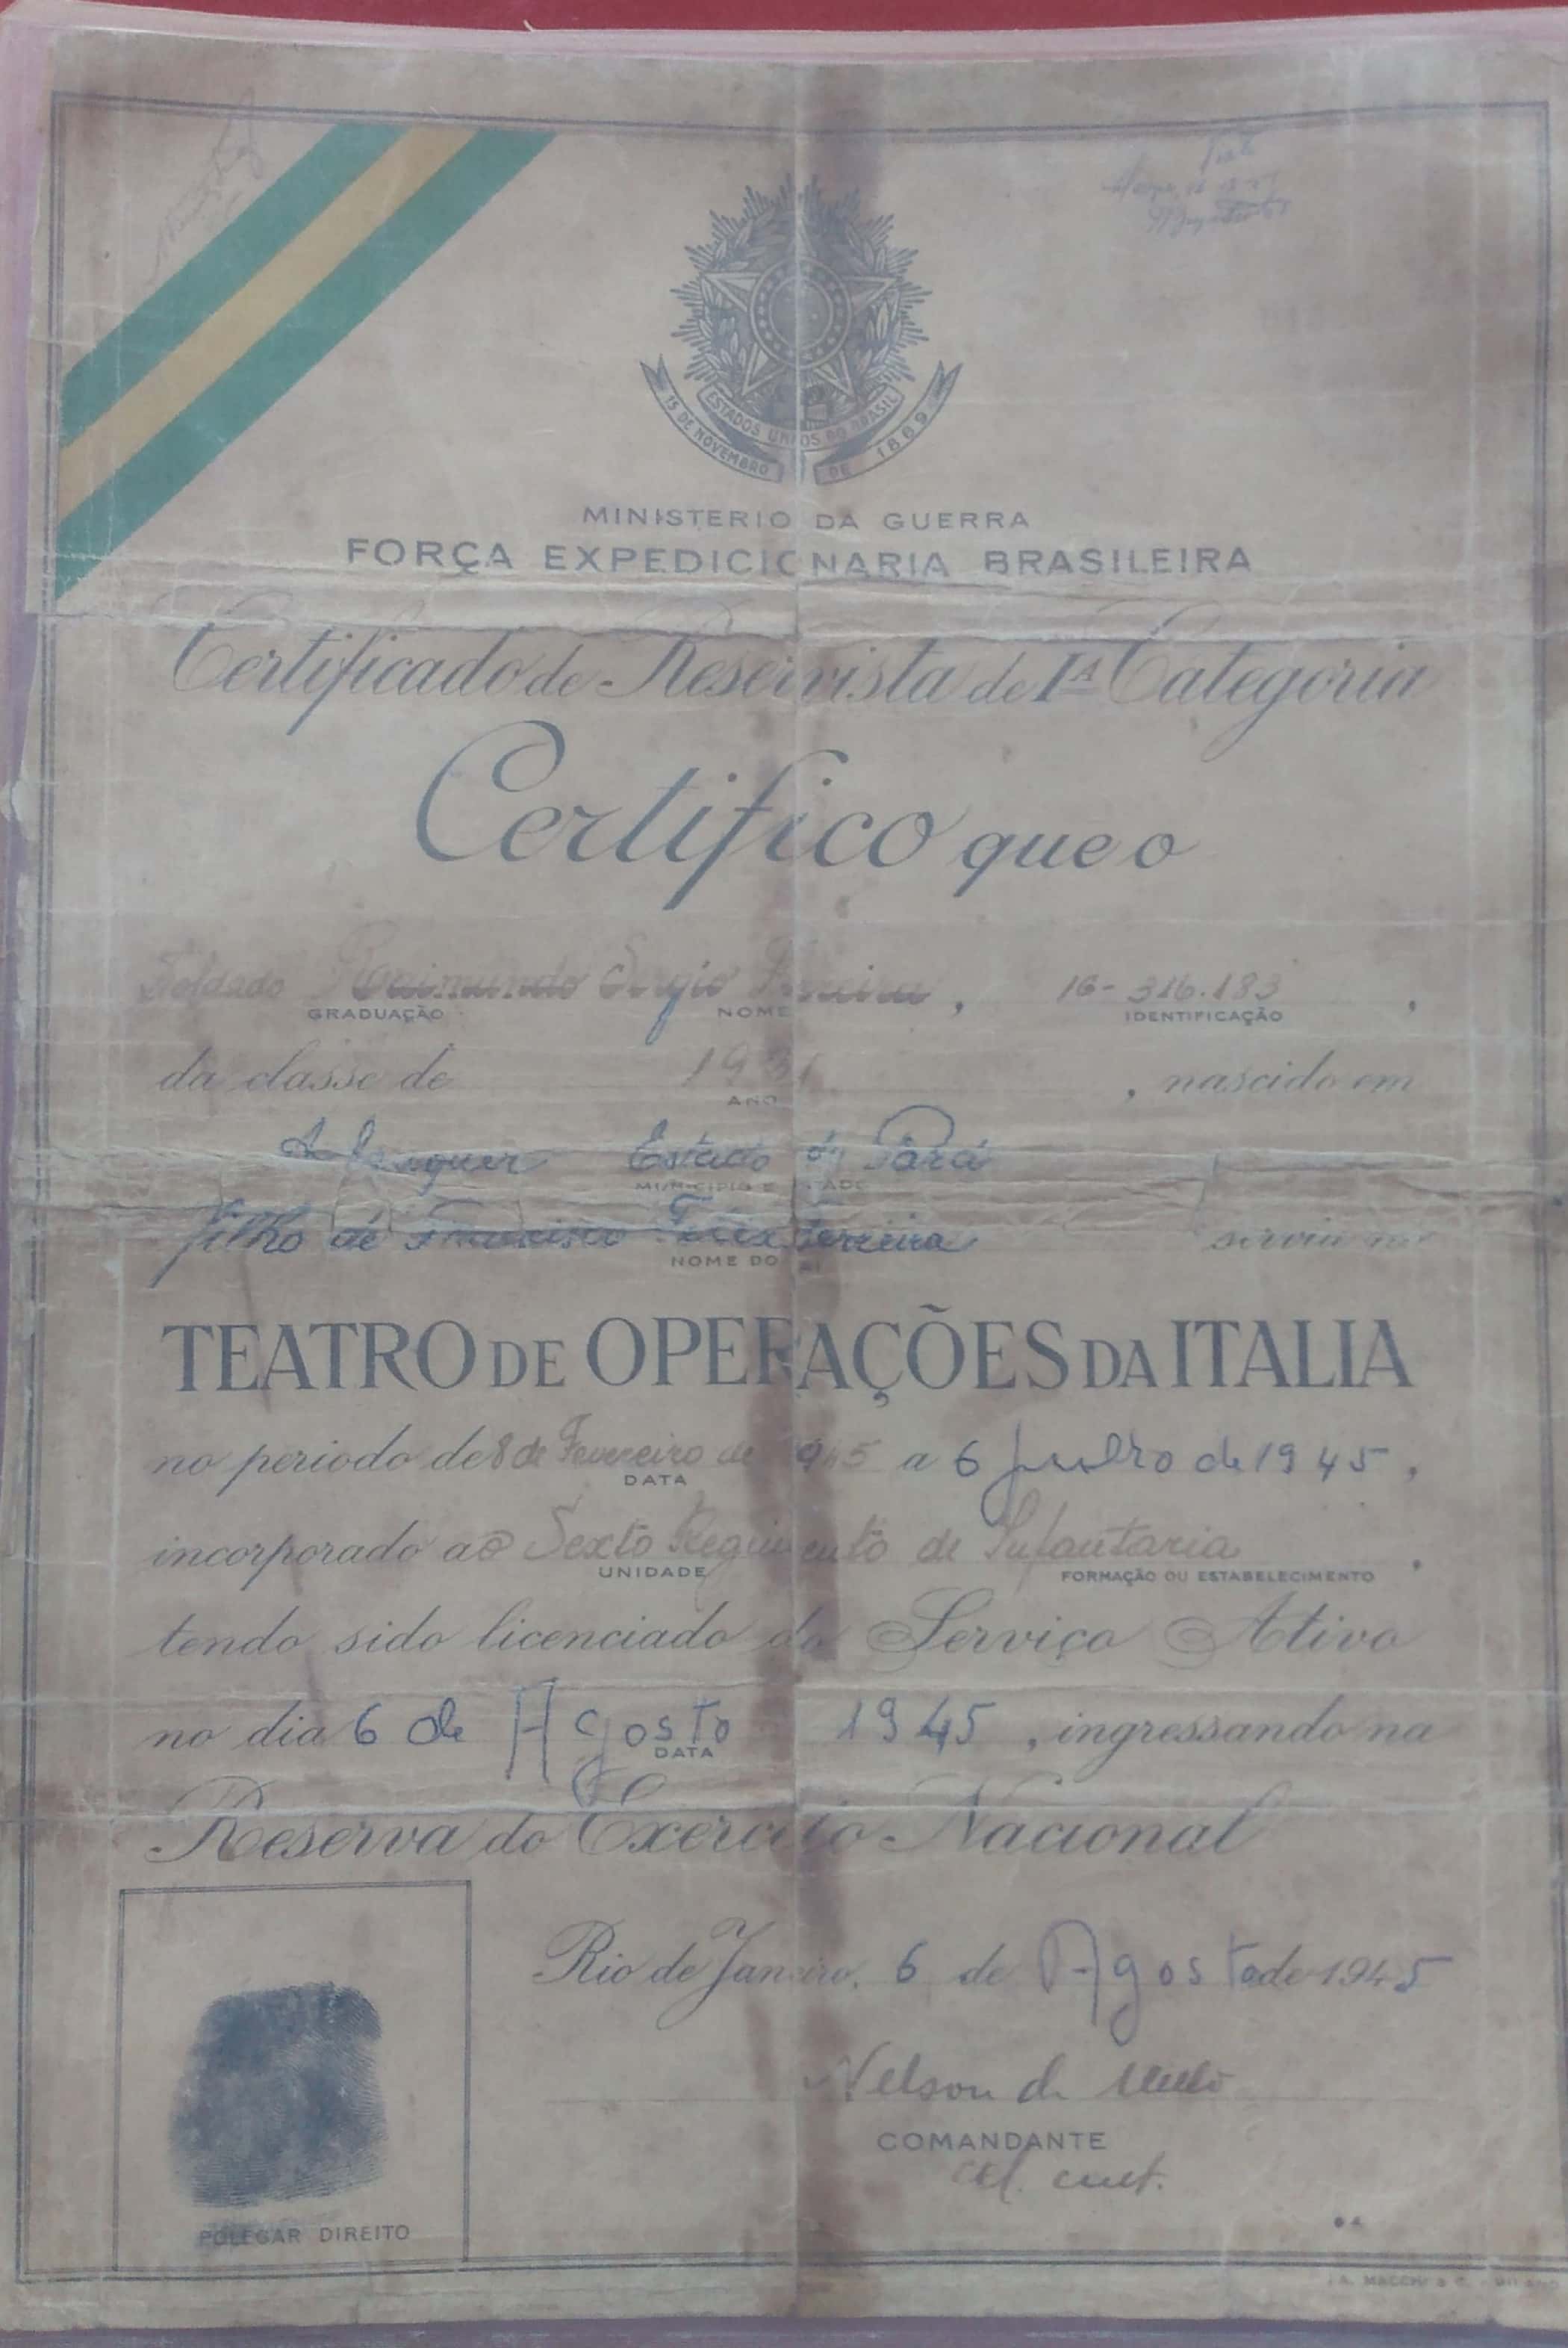 ESTADOS UNIDOS DO BRASIL
15 DE NOVEMBRO DE 1889
MINISTERIO DA GUERRA
FORÇA EXPEDICIONARIA BRASILEIRA
Certificado de Reservista de 1ª Categoria
Certifico que o
Soldado Raimundo Sergio Ferreira, 16-316.183,
GRADUAÇÃO NOME IDENTIFICAÇÃO
da classe de 1921, nascido em
ANO
Alenquer Estado do Pará
MUNICIPIO E ESTADO
filho de Francisco Ferreira serviu no
NOME DO PAI
TEATRO DE OPERAÇÕES DA ITALIA
no periodo de 8 de Fevereiro de 1945 a 6 Julho de 1945,
DATA
incorporado ao Sexto Regimento de Infantaria.
UNIDADE FORMAÇÃO OU ESTABELECIMENTO
tendo sido licenciado do Serviço Ativo
no dia 6 de Agosto 1945, ingressando na
DATA
Reserva do Exercito Nacional
Rio de Janeiro, 6 de Agosto de 1945
Nelson de Mello
COMANDANTE
Cel. cmt.
POLEGAR DIREITO